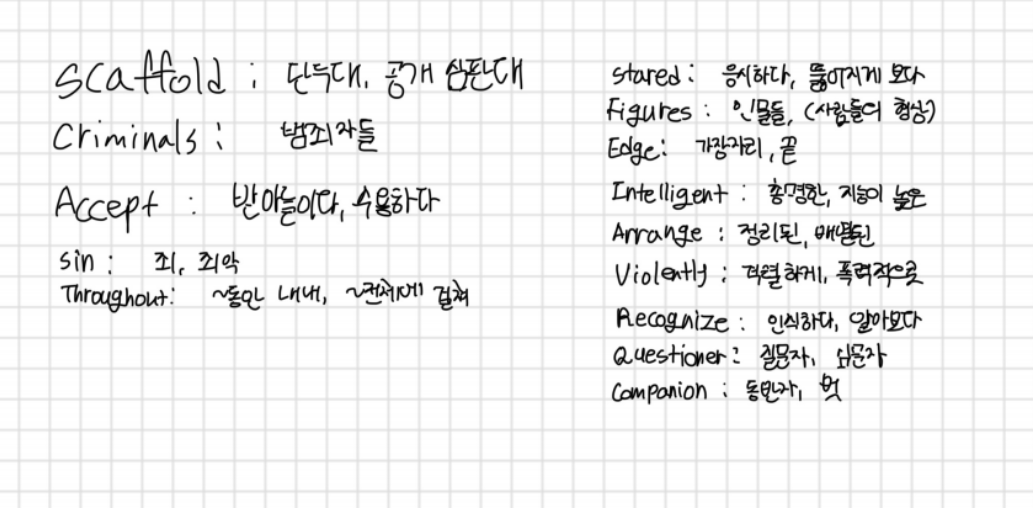 Scaffold : 단두대, 공개 심판대
Criminals : 범죄자들
Accept : 받아들이다, 수용하다
sin : 죄, 죄악
Throughout : ~동안 내내, ~전체에 걸쳐
stared : 응시하다, 뚫어지게 보다
Figures : 인물들, (사람들의 형상)
Edge : 가장자리, 끝
Intelligent : 총명한, 지능이 높은
Arrange : 정리된, 배열된
Violently : 격렬하게, 폭력적으로
Recognize : 인식하다, 알아보다
Questioner : 질문자, 심문자
Companion : 동반자, 벗